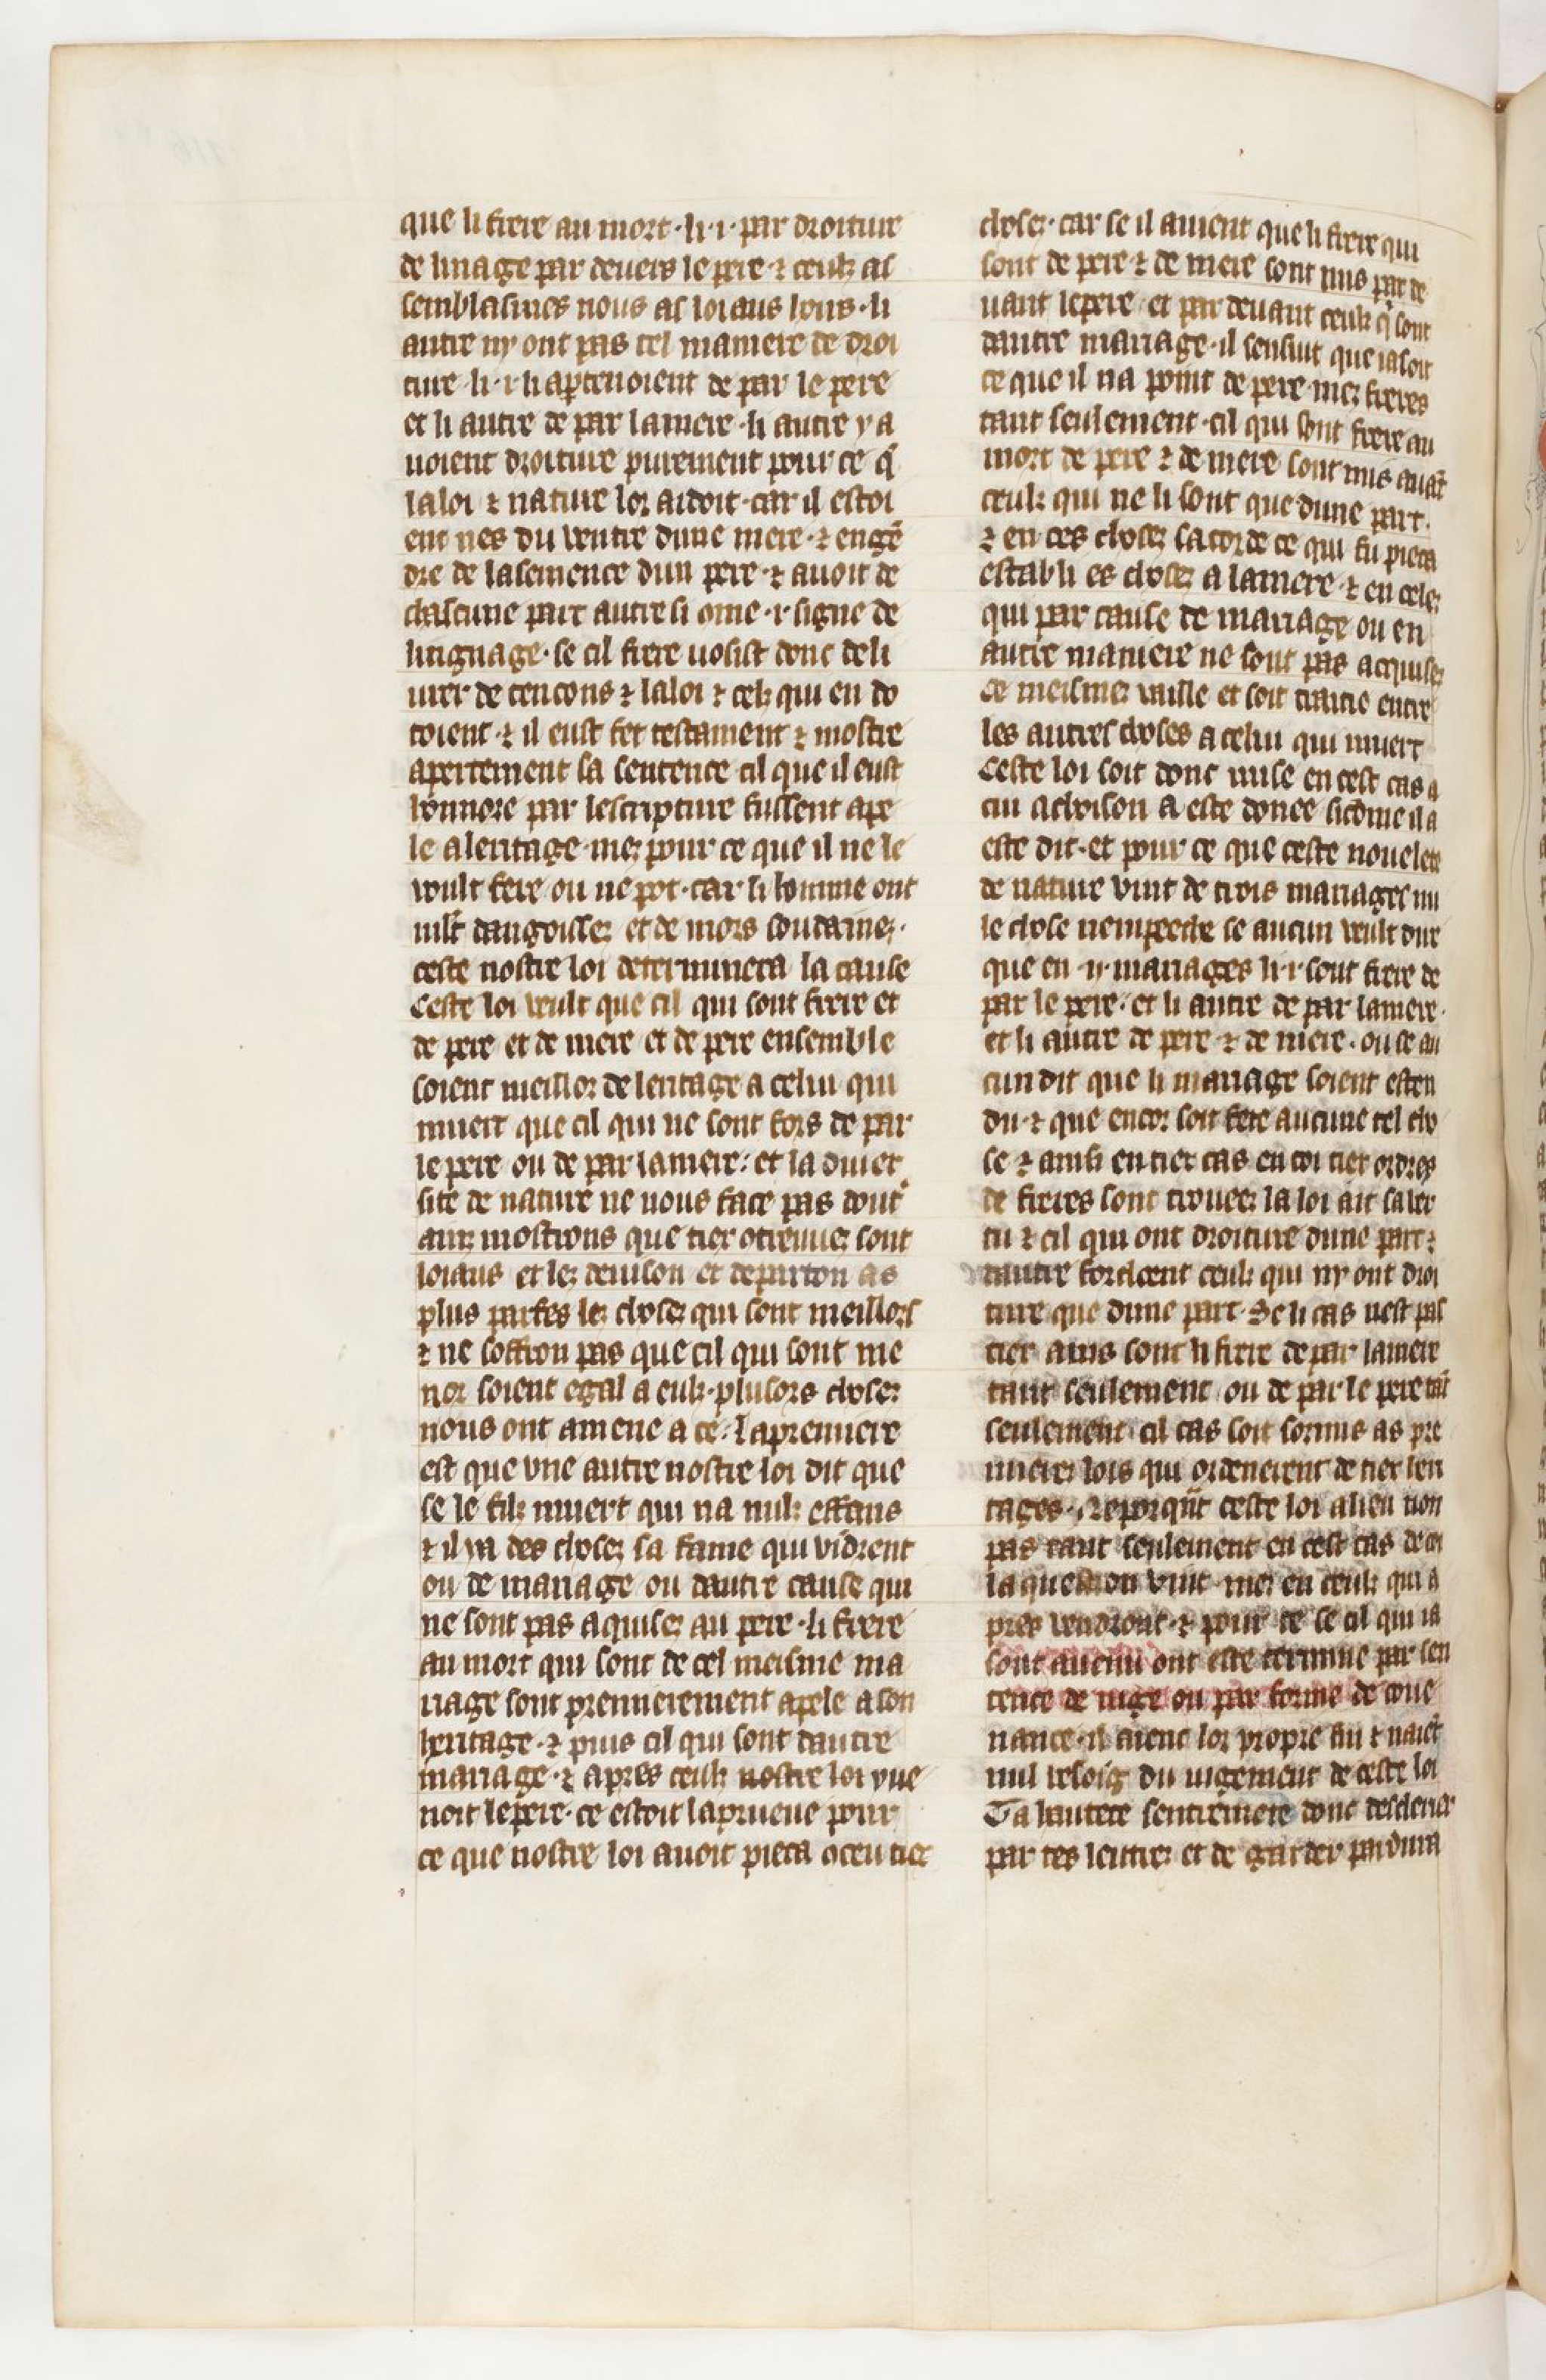 que li frere au mort · li · i · par droiture
de linage par deuers le pere · ⁊ ceulz as
semblasmes nous as loiaus lours · li
autre ny ont pas tel maniere de droi
ture · li · i · li apartenoient de par le pere
et li autre de par lamere · li autre y a
uoient droiture purement pour ce q̄
la loi ⁊ nature lor aidoit · car il estoi
ent nes du uentre dune mere · ⁊ engē
dre de la semence dun pere · ⁊ auoit de
chascune part autresi ōme · i · signe de
lingnage · se cil frere uosist donc deli
urer de tencons ⁊ la loi ⁊ celz qui en do
toient · ⁊ il eust fet testament ⁊ mostre
apertement sa sentence cil que il eust
honnore par lescripture fussent ape
le aleritage · mez pour ce que il ne le
voult fere ou ne pot · car li homme ont
mlt̄ dangoissez et de mors soudainez ·
ceste nostre loi determinera la cause
Ceste loi veult que cil qui sont frere et
de pere et de mere et de pere ensemble
soient meillor de leritage a celui qui
muert que cil qui ne sont fors de par
le pere ou de par lamere : et la diuer
site de nature ne nous face pas dout̄
ainz mostrons que tier otremiez sont
loiaus et lez deuison et departon as
plus parfes lez chosez qui sont meillors
⁊ ne soffron pas que cil qui sont me
nor soient egal a eulz · plusors chosez
nous ont amene a ce · La premiere
est que vne autre nostre loi dit que
se le filz muert qui na nulz effans
⁊ il ya des chosez sa fame qui vidrent
ou de mariage ou dautre cause qui
ne sont pas aquisez au pere · li frere
au mort qui sont de cel meisme ma
riage sont premierement apele a son
heritage · ⁊ puis cil qui sont dautre
mariage · ⁊ apres ceulz nostre loi y ue
noit le pere · ce estoit la prueue pour
ce que nostre loi auoit pieca oceu tiex
chosez · car se il auient que li frere qui
sont de pere ⁊ de mere sont mis par de
uant le pere · et par deuant ceulz q̄ sont
dautre mariage · il sensuit que ia soit
ce que il na point de pere mez freres
tant seulement · cil qui sont frere au
mort de pere ⁊ de mere sont mis auāt
ceulz qui ne li sont que dune part ·
⁊ en ces chosez sacorde ce qui fu pieca
establi es chosez a lamere · ⁊ en celez
qui par cause de mariage ou en
autre maniere ne sont pas acquisez
ce meismez vaille et soit traitie entre
les autres choses a celui qui muert
Ceste loi soit donc mise en cest cas a
cui achoison a este donee sicōme il a
este dit · et pour ce que ceste nouelete
de nature vint de trois mariages nu
le chose nempeeche se aucun veult dire
que en · ij · mariages li · i · sont frere de
par le pere · et li autre de par lamere ·
et li autre de pere · ⁊ de mere · ou se au
cun dit que li mariage soient esten
du · ⁊ que encor soit fete aucune tel cho
se ⁊ ainsi en tier cas en coi tier ordres
de freres sont trouez la loi ait sa ver
tu ⁊ cil qui ont droiture dune part ⁊
dautre forcloent ceulz qui ny ont droi
ture que dune part · Se li cas nest pas
tiex ains sont li frere de par lamere
tant seulement · ou de par le pere tāt
seulement · cil cas soit sormis as pre
mierez lois qui ordenerent de tiex leri
tages · ⁊ ceste loi a lieu non
pas tant seulement en cest cas de coi
la question vint · mez en ceulz qui a
pres vendront · ⁊ pour ce se cil qui ia
sont auenu ont este termine par sen
tence de iuge ou par forme de coue
nance · il aient lor propre fin ⁊ naiēt
nul resoig du iugement de ceste loi
Ta hautece sentremete donc desclerier
par tes lettrez et de garder pardura